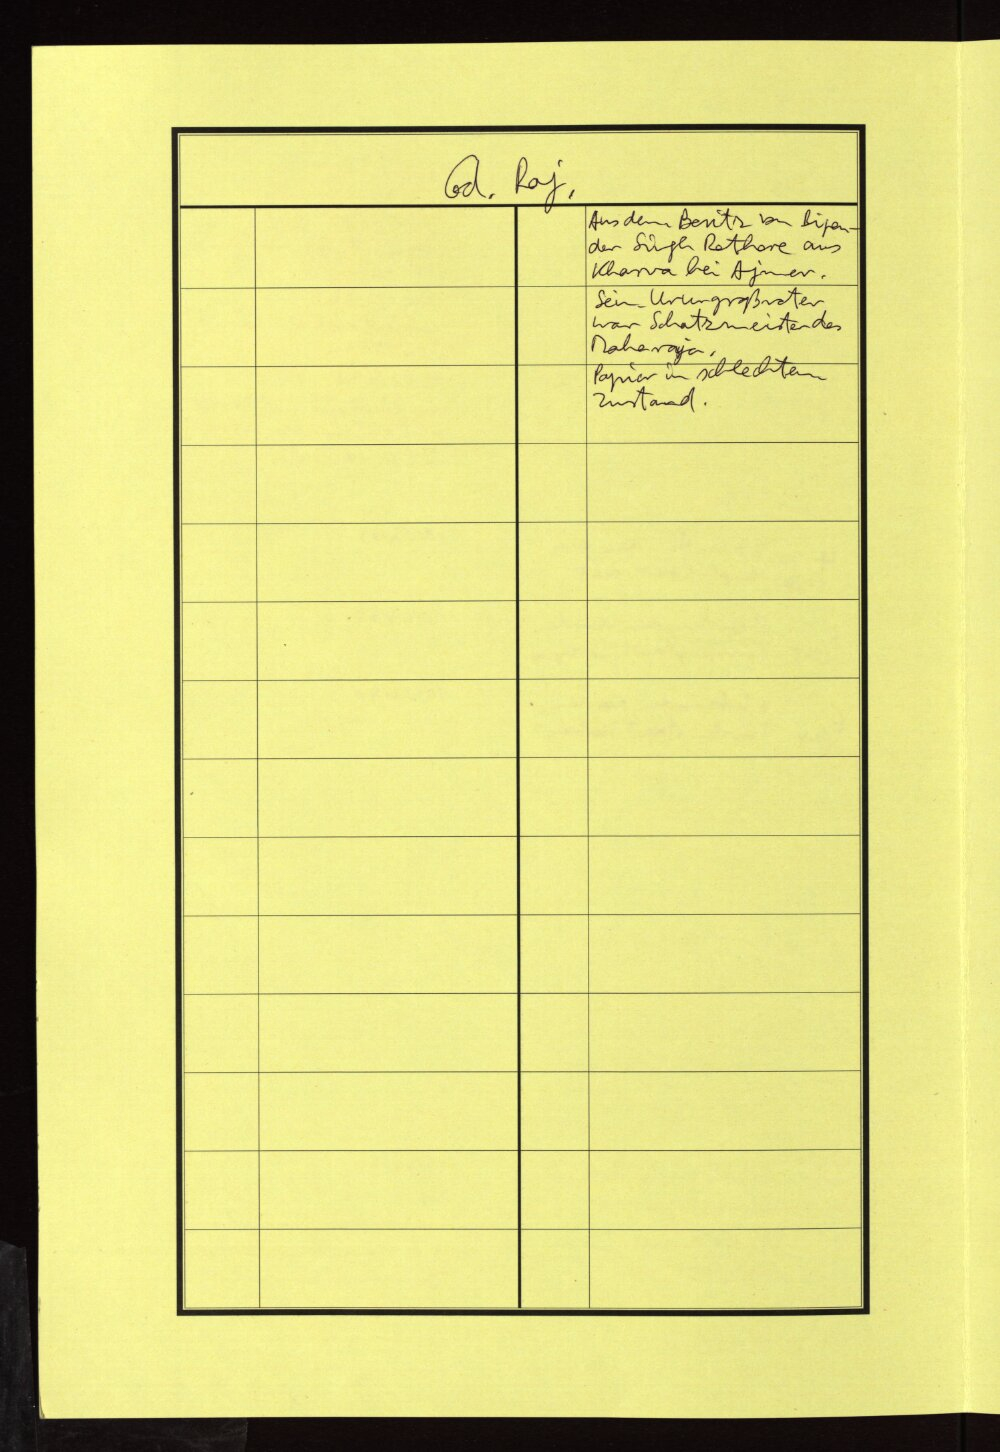 Cod. Raj.
Aus dem Besitz von Bijen-
der Singh Rathore aus
Kharva bei Ajmer.
Sein Ururgroßvater
war Schatzmeister des
Maharaja.
Papier in schlechtem
Zustand.